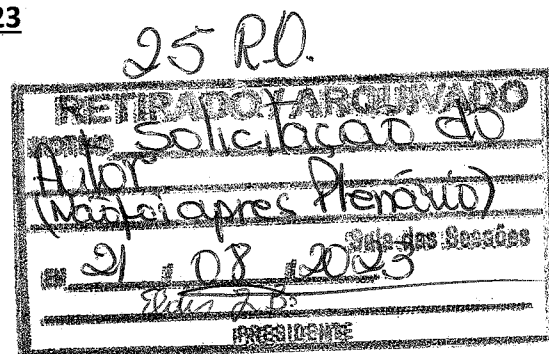 23
25 R.O.
RETIRADO + ARQUIVADO
Solicitação do
Autor
(Não foi apres Plenário)
Sala das Sessões
EM 21 / 08 / 2023
PRESIDENTE